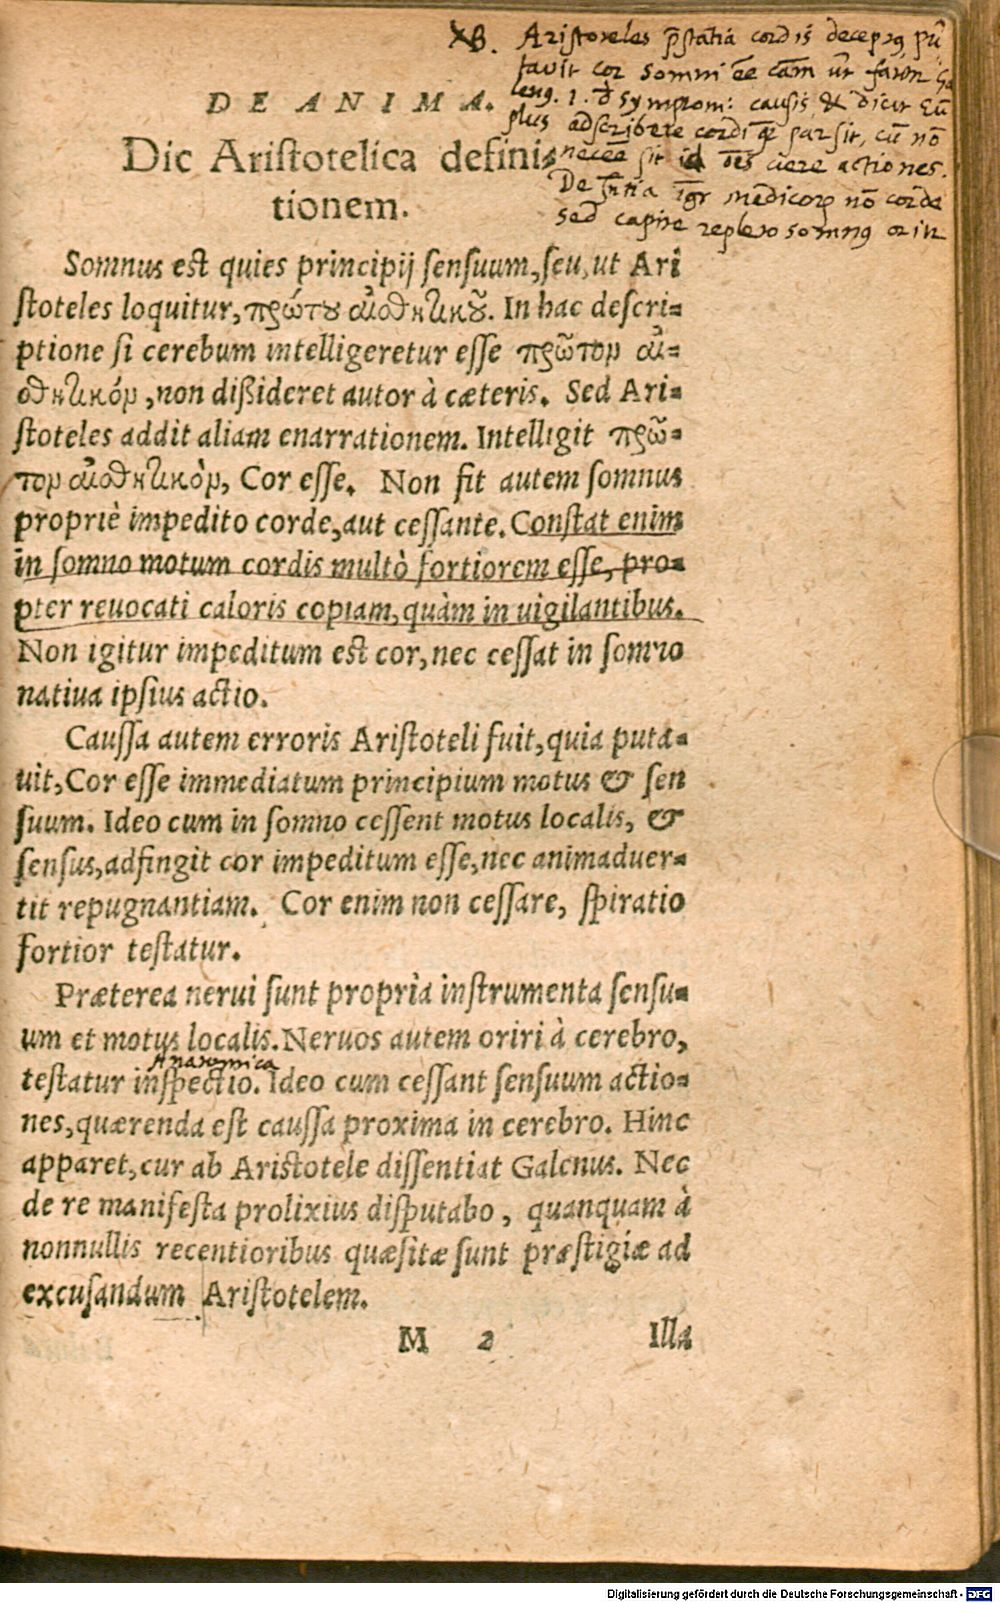 XB. Aristoteles p̄stātiā cordis deceptꝰ pu᷑
tauit cor somni ēē cām ut fatet᷑ Ga
lenꝰ. 1. de Symptom: causis, & dicit Eū
DE ANIMA.
plus adscribere cordi quā par sit, cū nō
Dic Aristotelica defini⸗
necēē sit id oēs ciere actiones.
tionem.
De medicorū nō corde
sed capite repleto somnꝰ orit᷑
Somnus est quies principij sensuum, seu, ut Ari
stoteles loquitur, πρώτου αἰσθητικοῦ. In hac descri⸗
ptione si cerebum intelligeretur esse πρῶτον αἰ⸗
σθητικόν, non dißideret autor à cæteris. Sed Ari⸗
stoteles addit aliam enarrationem. Intelligit πρῶ⸗
τον αἰσθητικὸν, Cor esse. Non fit autem somnus
propriè impedito corde, aut cessante. Constat enim
in somno motum cordis multò fortiorem esse, pro⸗
pter reuocati caloris copiam, quàm in uigilantibus.
Non igitur impeditum est cor, nec cessat in somno
natiua ipsius actio.
Caussa autem erroris Aristoteli fuit, quia puta⸗
uit, Cor esse immediatum principium motus & sen
suum. Ideo cum in somno cessent motus localis, &
sensus, adfingit cor impeditum esse, nec animaduer⸗
tit repugnantiam. Cor enim non cessare, spiratio
fortior testatur.
Præterea nerui sunt propria instrumenta sensu⸗
um et motus localis. Neruos autem oriri à cerebro,
Anatomica
testatur inspectio. Ideo cum cessant sensuum actio⸗
nes, quærenda est caussa proxima in cerebro. Hinc
apparet, cur ab Aristotele dissentiat Galenus. Nec
de re manifesta prolixius disputabo, quanquam à
nonnullis recentioribus quæsitæ sunt præstigiæ ad
excusandum Aristotelem.
M 2 Illa
Digitalisierung gefördert durch die Deutsche Forschungsgemeinschaft - DFG